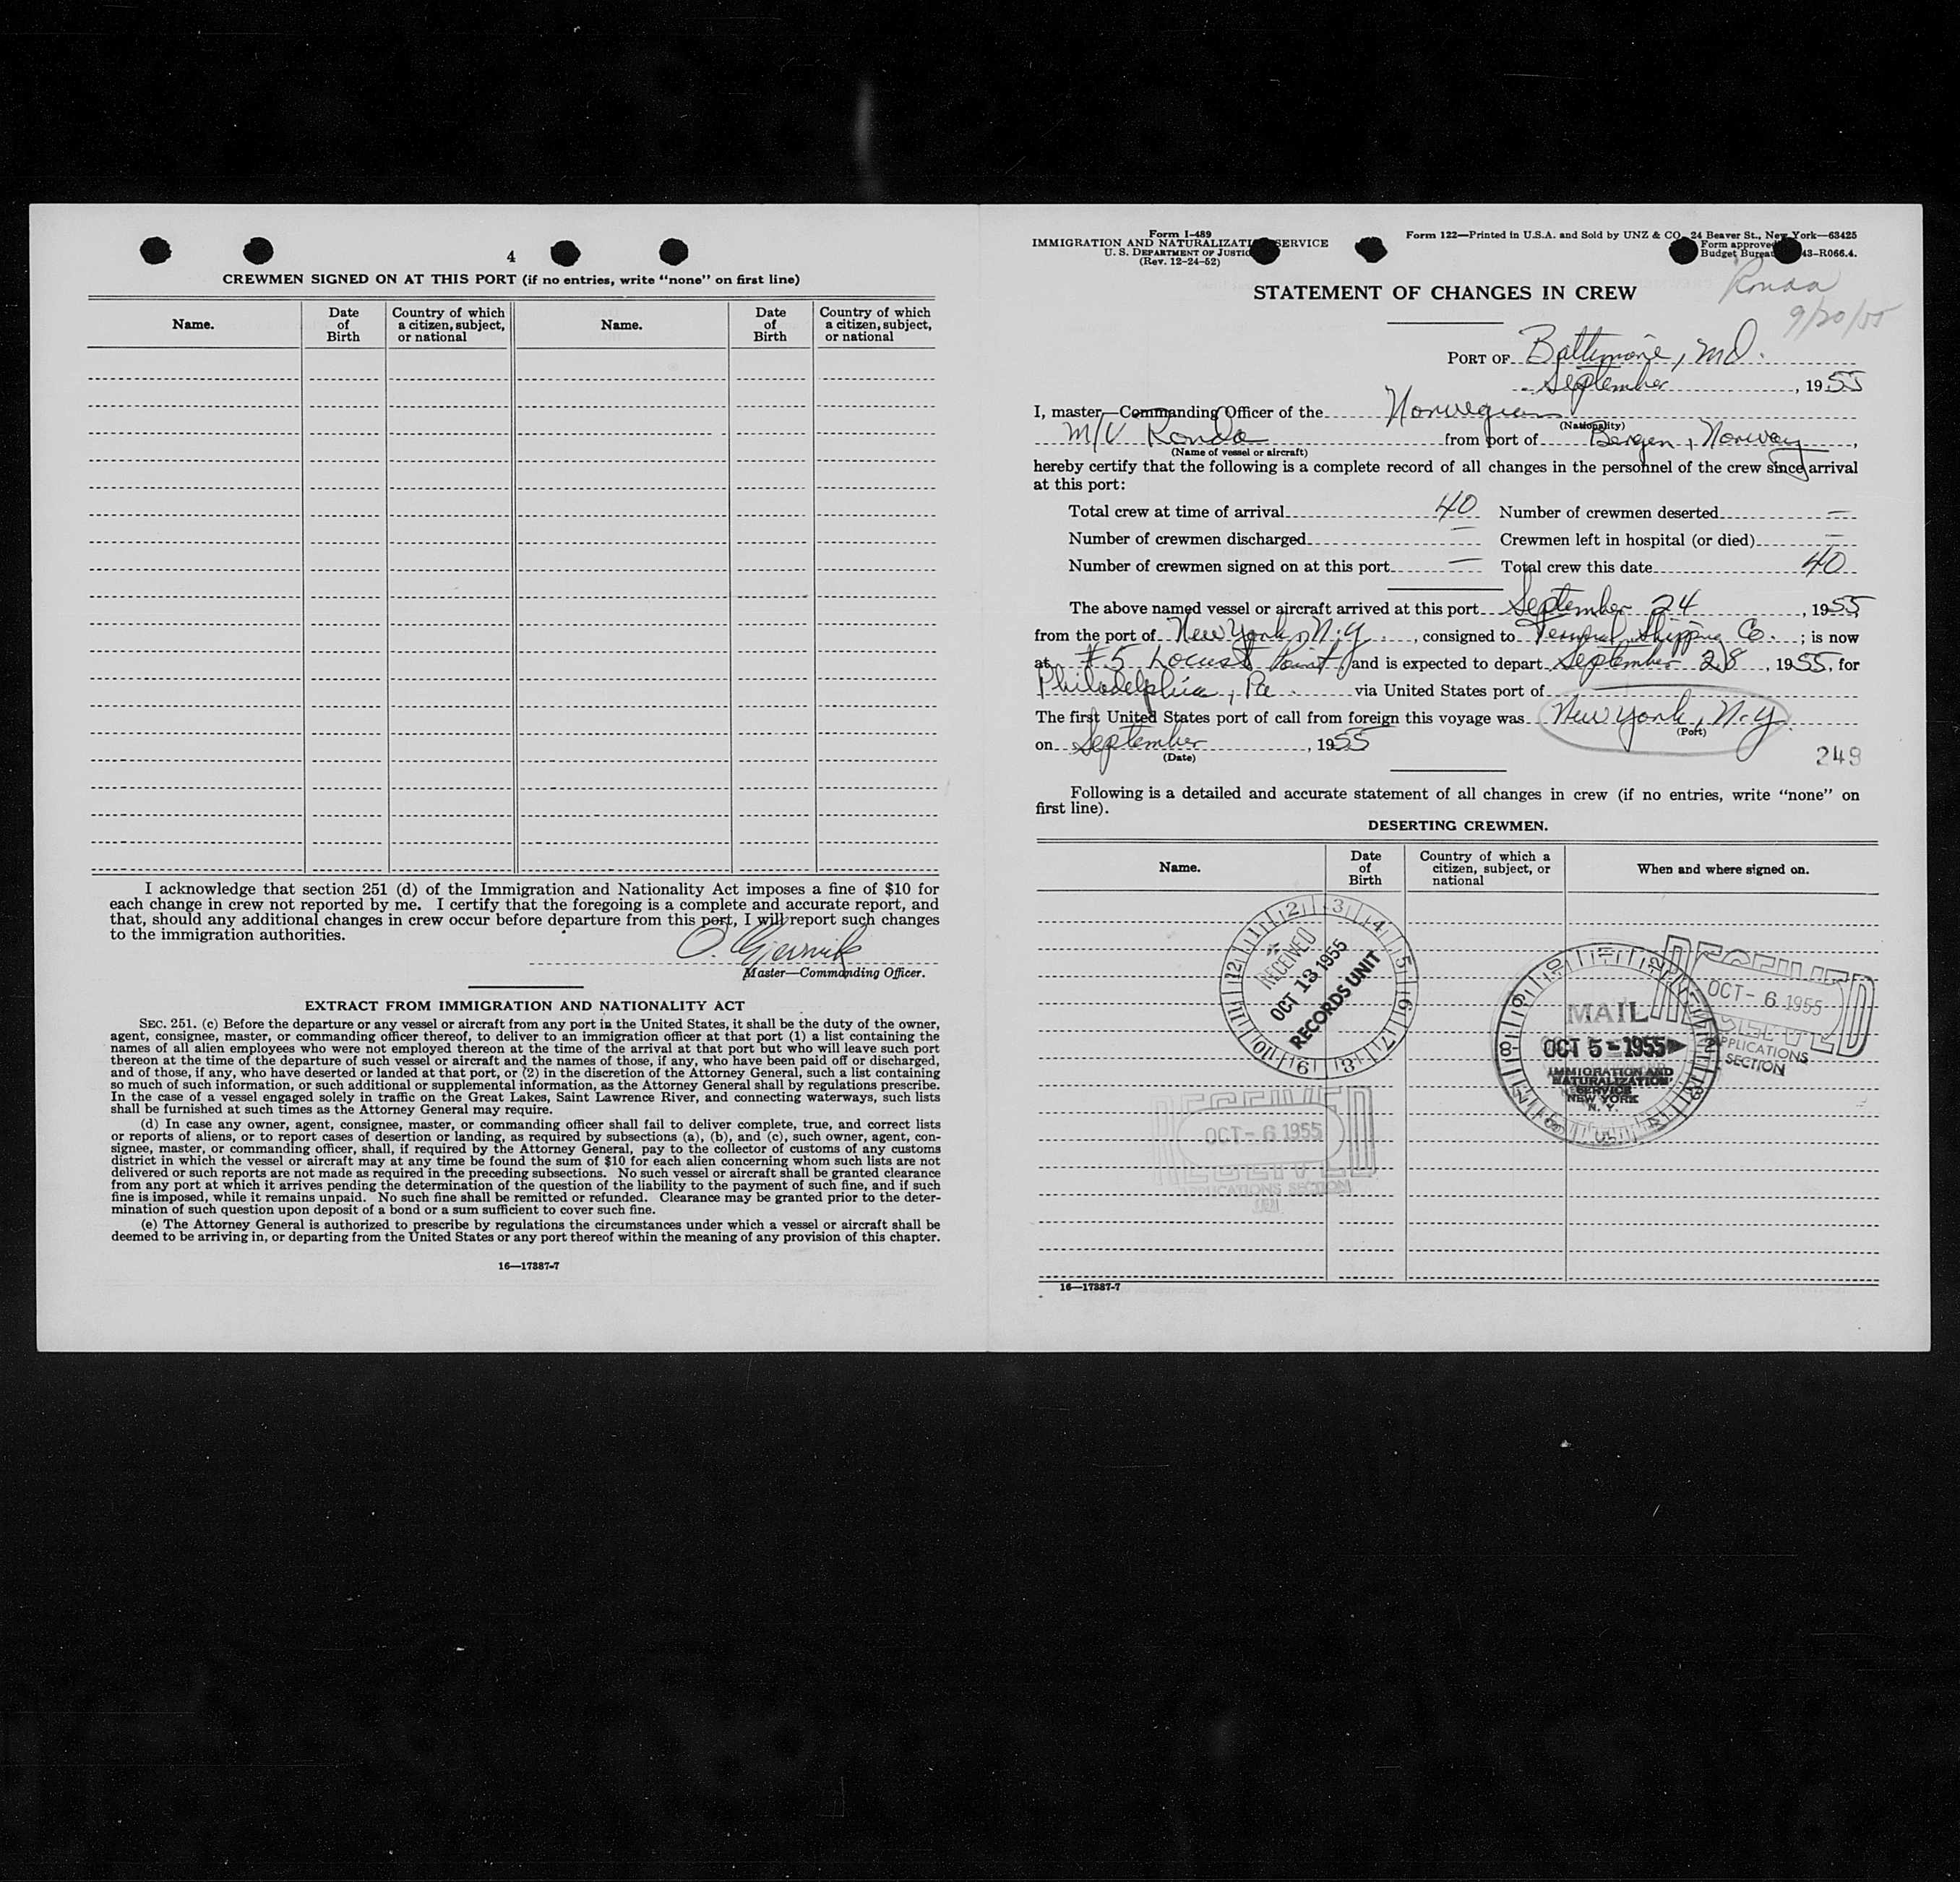 4
CREWMEN SIGNED ON AT THIS PORT (if no entries, write "none" on first line)
Name. Date of Birth Country of which a citizen, subject, or national Name. Date of Birth Country of which a citizen, subject, or national
I acknowledge that section 251 (d) of the Immigration and Nationality Act imposes a fine of $10 for
each change in crew not reported by me. I certify that the foregoing is a complete and accurate report, and
that, should any additional changes in crew occur before departure from this port, I will report such changes
to the immigration authorities.
Master—Commanding Officer.
EXTRACT FROM IMMIGRATION AND NATIONALITY ACT
SEC. 251. (c) Before the departure or any vessel or aircraft from any port in the United States, it shall be the duty of the owner,
agent, consignee, master, or commanding officer thereof, to deliver to an immigration officer at that port (1) a list containing the
names of all alien employees who were not employed thereon at the time of the arrival at that port but who will leave such port
thereon at the time of the departure of such vessel or aircraft and the names of those, if any, who have been paid off or discharged,
and of those, if any, who have deserted or landed at that port, or (2) in the discretion of the Attorney General, such a list containing
so much of such information, or such additional or supplemental information, as the Attorney General shall by regulations prescribe.
In the case of a vessel engaged solely in traffic on the Great Lakes, Saint Lawrence River, and connecting waterways, such lists
shall be furnished at such times as the Attorney General may require.
(d) In case any owner, agent, consignee, master, or commanding officer shall fail to deliver complete, true, and correct lists
or reports of aliens, or to report cases of desertion or landing, as required by subsections (a), (b), and (c), such owner, agent, con-
signee, master, or commanding officer, shall, if required by the Attorney General, pay to the collector of customs of any customs
district in which the vessel or aircraft may at any time be found the sum of $10 for each alien concerning whom such lists are not
delivered or such reports are not made as required in the preceding subsections. No such vessel or aircraft shall be granted clearance
from any port at which it arrives pending the determination of the question of the liability to the payment of such fine, and if such
fine is imposed, while it remains unpaid. No such fine shall be remitted or refunded. Clearance may be granted prior to the deter-
mination of such question upon deposit of a bond or a sum sufficient to cover such fine.
(e) The Attorney General is authorized to prescribe by regulations the circumstances under which a vessel or aircraft shall be
deemed to be arriving in, or departing from the United States or any port thereof within the meaning of any provision of this chapter.
16—17887-7
Form I-489
IMMIGRATION AND NATURALIZATI SERVICE
U. S. DEPARTMENT OF JUSTIC
(Rev. 12-24-52)
Form 122—Printed in U.S.A. and Sold by UNZ & CO 24 Beaver St., New York—63425
Form approve
Budget Bureau 43-R066.4.
Ronda
9/20/55
STATEMENT OF CHANGES IN CREW
PORT OF Baltimore, Md.
September, 1955
I, master—Commanding Officer of the Norwegian
(Nationality)
M/V Ronda from port of Bergen, Norway,
(Name of vessel or aircraft)
hereby certify that the following is a complete record of all changes in the personnel of the crew since arrival
at this port:
Total crew at time of arrival 40 Number of crewmen deserted —
Number of crewmen discharged — Crewmen left in hospital (or died) —
Number of crewmen signed on at this port — Total crew this date 40
The above named vessel or aircraft arrived at this port September 24, 1955
from the port of New York, N.Y., consigned to Shipping Co.; is now
at #5 Locust Point, and is expected to depart September 28, 1955, for
Philadelphia, Pa. via United States port of —
The first United States port of call from foreign this voyage was New York, N.Y.
(Port)
on September, 1955
(Date)
249
Following is a detailed and accurate statement of all changes in crew (if no entries, write "none" on
first line).
DESERTING CREWMEN.
Name. Date of Birth Country of which a citizen, subject, or national When and where signed on.
RECEIVED
OCT 13 1955
RECORDS UNIT
MAIL
OCT 5 - 1955
IMMIGRATION AND
NATURALIZATION
SERVICE
NEW YORK
N. Y.
RECEIVED
OCT - 6 1955
RECEIVED
APPLICATIONS
SECTION
RECEIVED
OCT - 6 1955
RECEIVED
APPLICATIONS SECTION
16—17887-7